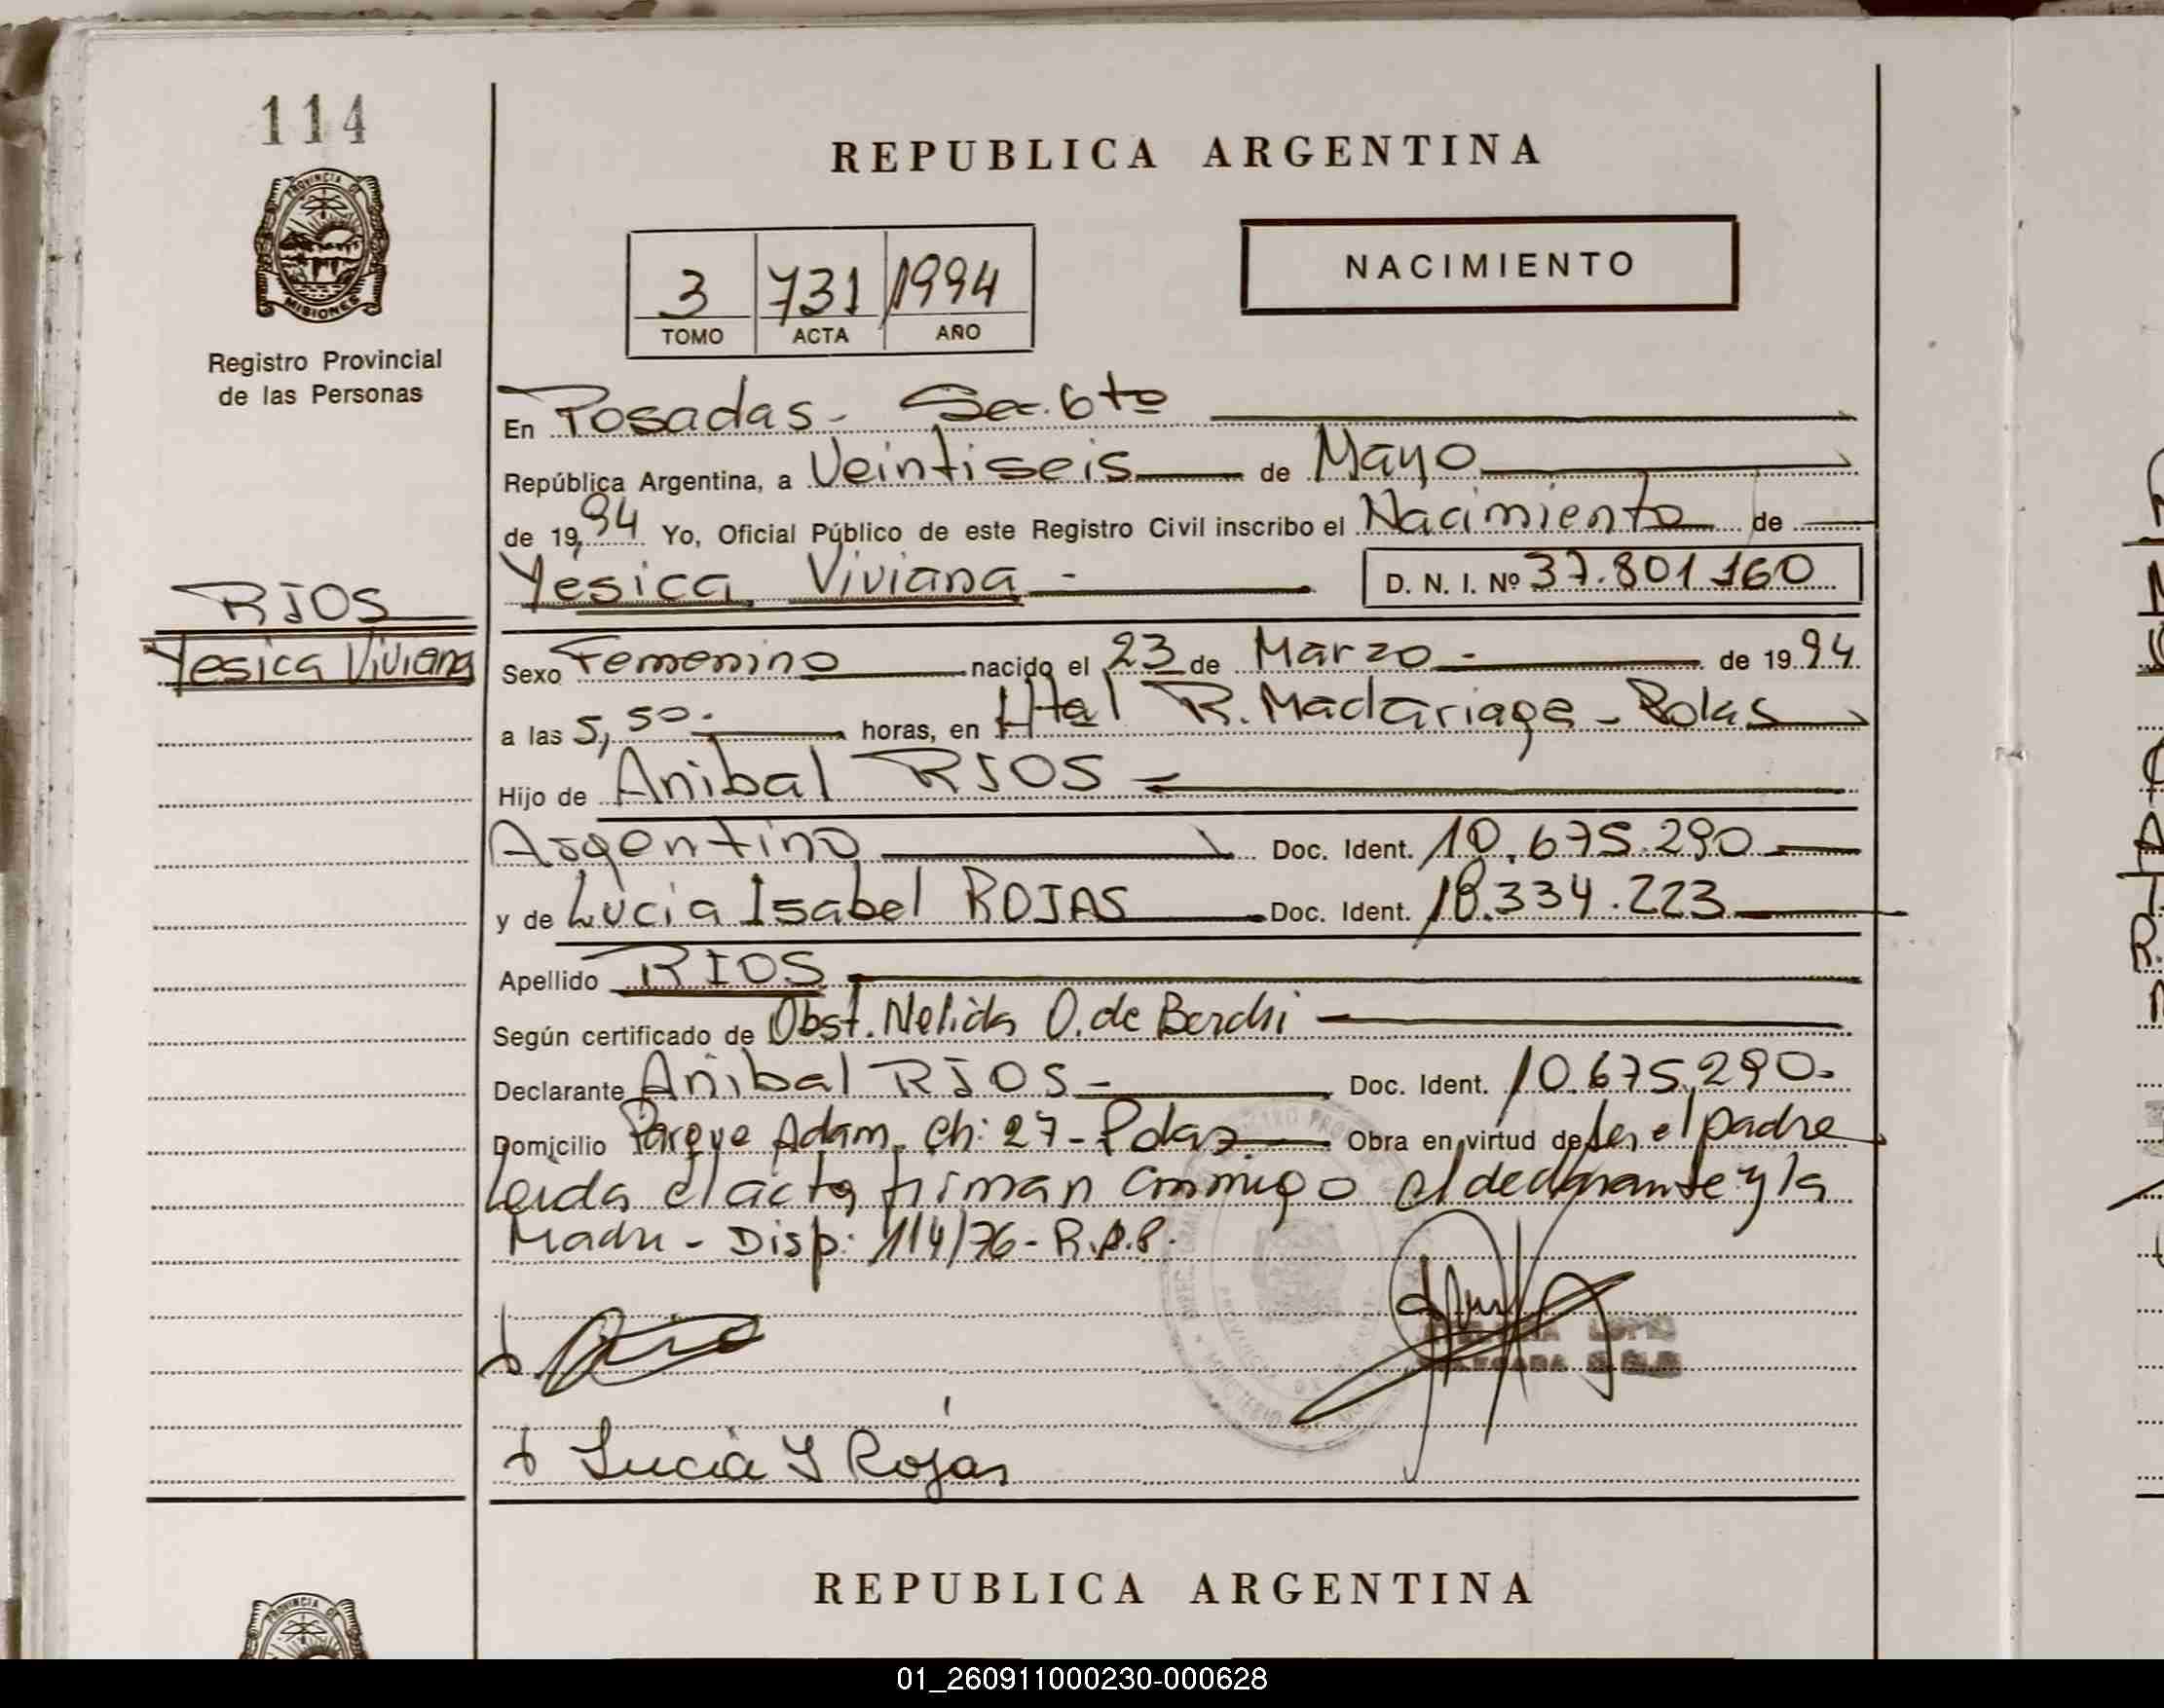 114
REPUBLICA ARGENTINA
PROVINCIA DE
MISIONES
Registro Provincial
de las Personas
3 731 1994
TOMO ACTA AÑO
NACIMIENTO
En Posadas - Sec. 6to
República Argentina, a Veintiseis de Mayo
de 19 94 Yo, Oficial Público de este Registro Civil inscribo el Nacimiento de
Yesica Viviana - D. N. I. Nº 37.801.160
RIOS
Yesica Viviana
Sexo Femenino nacido el 23 de Marzo - de 19 94
a las 5,50. horas, en Htal R. Madariaga - Pdas
Hijo de Anibal RIOS
Argentino Doc. Ident. 10.675.290
y de Lucia Isabel ROJAS Doc. Ident. 18.334.223
Apellido RIOS
Según certificado de Obst. Nelida O. de Berchi
Declarante Anibal RIOS - Doc. Ident. 10.675.290.
Domicilio Parque Adam. Ch: 27 - Pdas Obra en virtud de ser el padre
Leida el acta firman conmigo el declarante y la
Madre - Disp: 114/76 - R.P.P.
Lucia I Rojas
REPUBLICA ARGENTINA
PROVINCIA DE
01_260911000230-000628